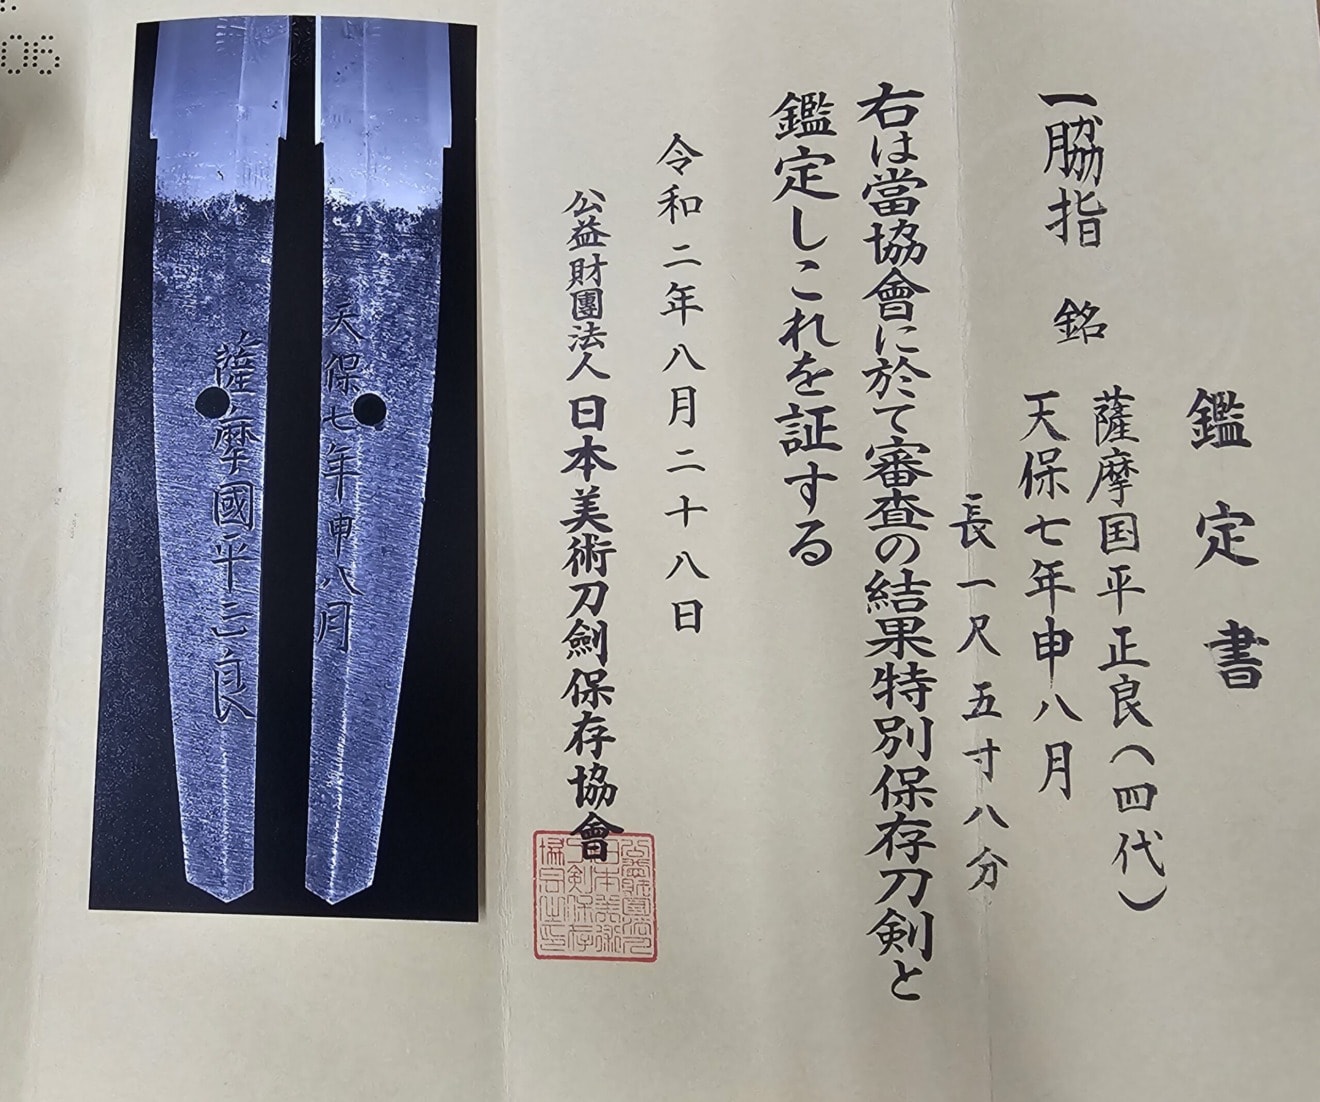 鑑定書
一脇指 銘 薩摩国平正良(四代)
天保七年申八月
長一尺五寸八分
右は當協會に於て審査の結果特別保存刀剣と
鑑定しこれを証する
令和二年八月二十八日
公益財團法人日本美術刀劍保存協會
天保七年申八月
薩摩國平正良
06